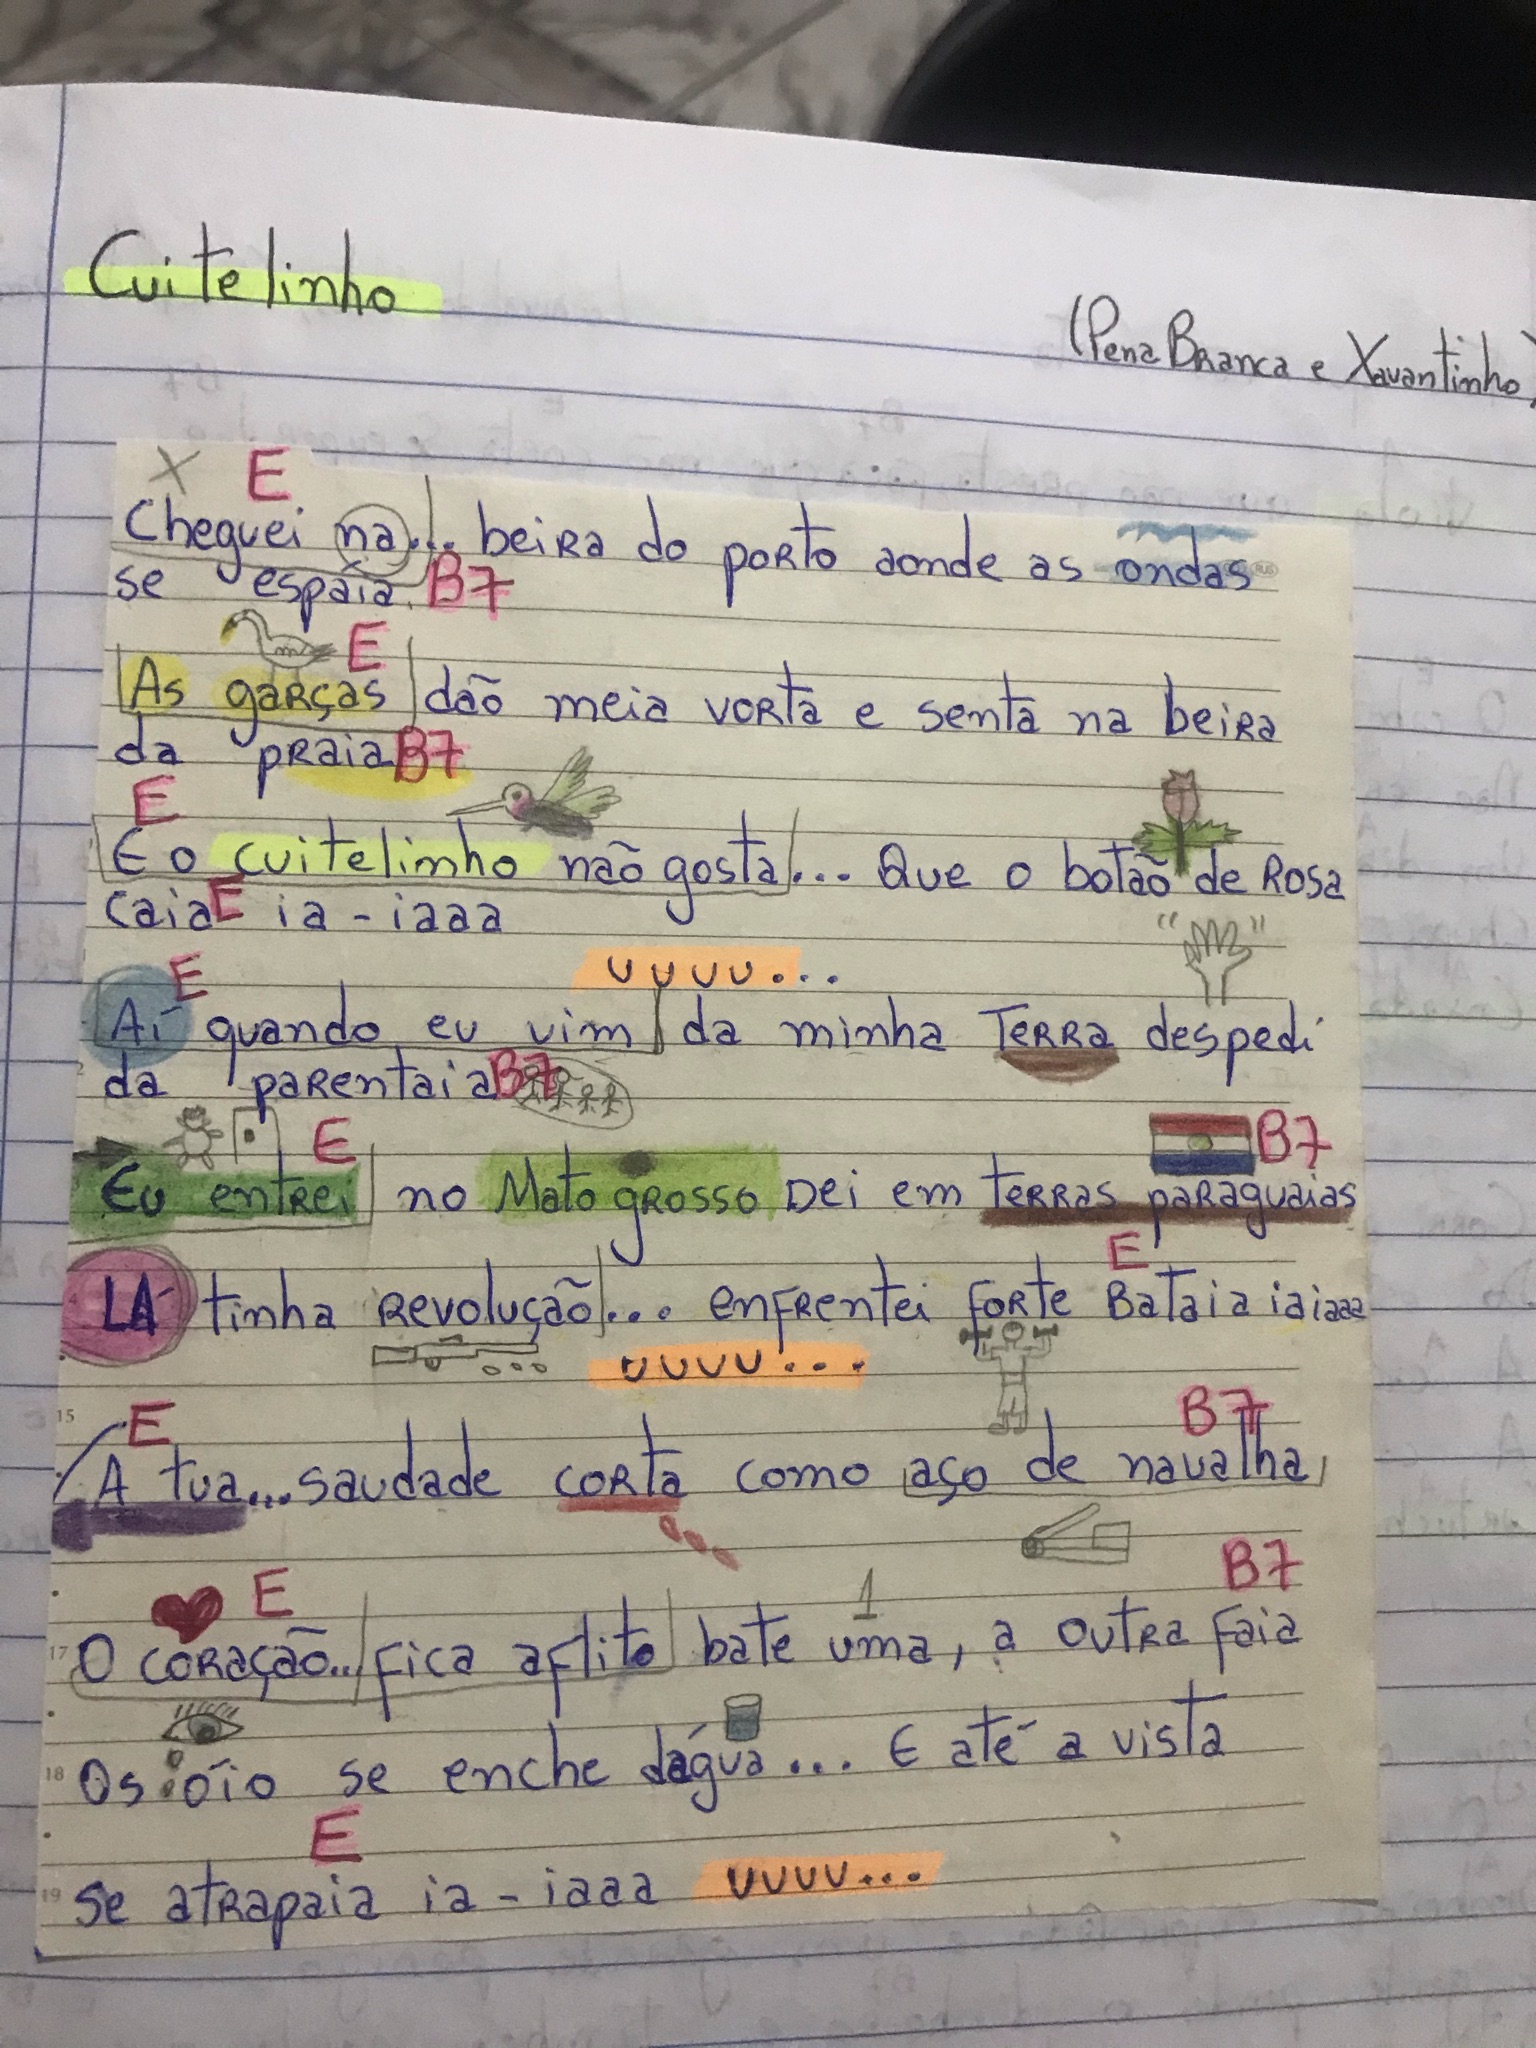 Cuitelinho
(Pena Branca e Xavantinho)
X E
Cheguei na... beira do porto aonde as ondas
se espáia. B7
E
As garças dão meia vorta e senta na beira
da praia B7
E
E o cuitelinho não gosta... Que o botão de Rosa
caia E ia - iaaa
E UUUU...
Aí quando eu vim da minha Terra despedi
da parentaia B7
E B7
Eu entrei no Mato grosso Dei em terras paraguaias
E
LÁ tinha Revolução... enfrentei forte Bataia iaiaaa
UUUU...
15 E B7
A tua... saudade corta como aço de navalha
E 1 B7
17 O coração.. fica aflito bate uma, a outra faia
18 Os óio se enche dágua... E até a vista
E
19 se atrapaia ia - iaaa UUUU...